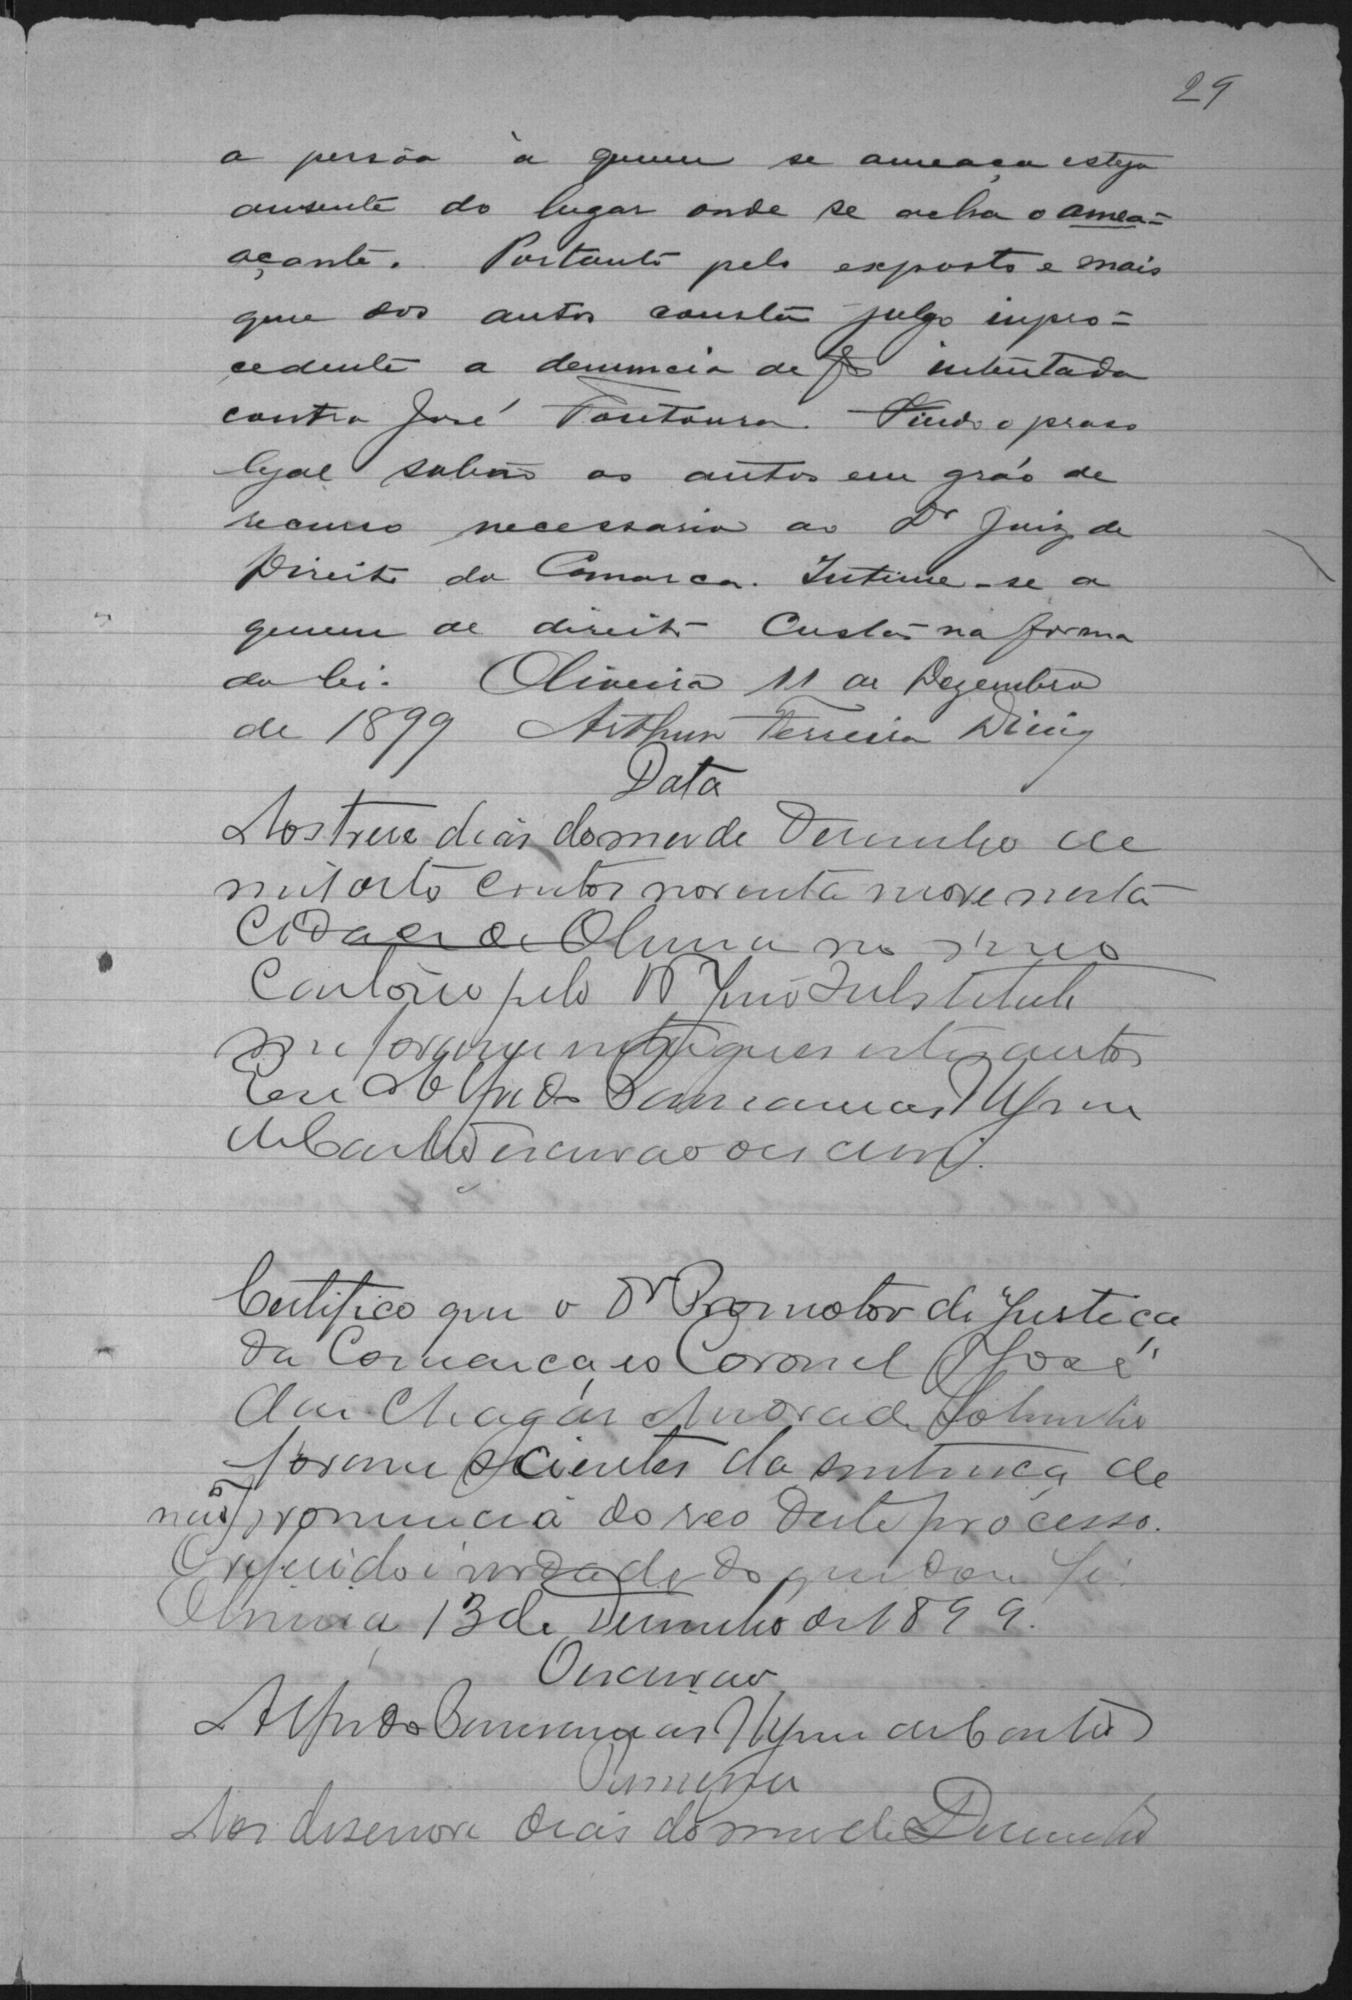 29
a persôa à quem se ameaça esteja
ausente do lugar onde se acha o amea=
açante. Portanto pelo exposto e mais
que dos autos consta julgo impro=
cedente a denuncia de fs intentada
contra José Fontoura. Findo o praso
legal subão os autos em gráo de
recurso necessario ao Dr Juiz de
Direito da Comarca. Intime-se a
quem de direito Custas na forma
da lei. Oliveira 11 de Dezembro
de 1899 Arthur Ferreira Diniz
Data
Aos treze dias do mez de Dezembro de
mil oito centos noventa nove nesta
Cidade de Oliveira no meo
Cartorio pelo Dr Juiz Substituto
me foram entregues estes autos
Eu Alfredo
de Castro escrivão o escrevi.
Certifico que o Dr Promotor de Justiça
da Comarca, eo Coronel José
das Chagas Andrade Sobrinho
foram scientes da sentença de
não pronuncia do reo deste processo.
O referido é verdade do que dou fé.
Oliveira 13 de Dezembro de 1899.
O escrivão
Alfredo de Castro
Remessa
Aos desenove dias do mez de Dezembro